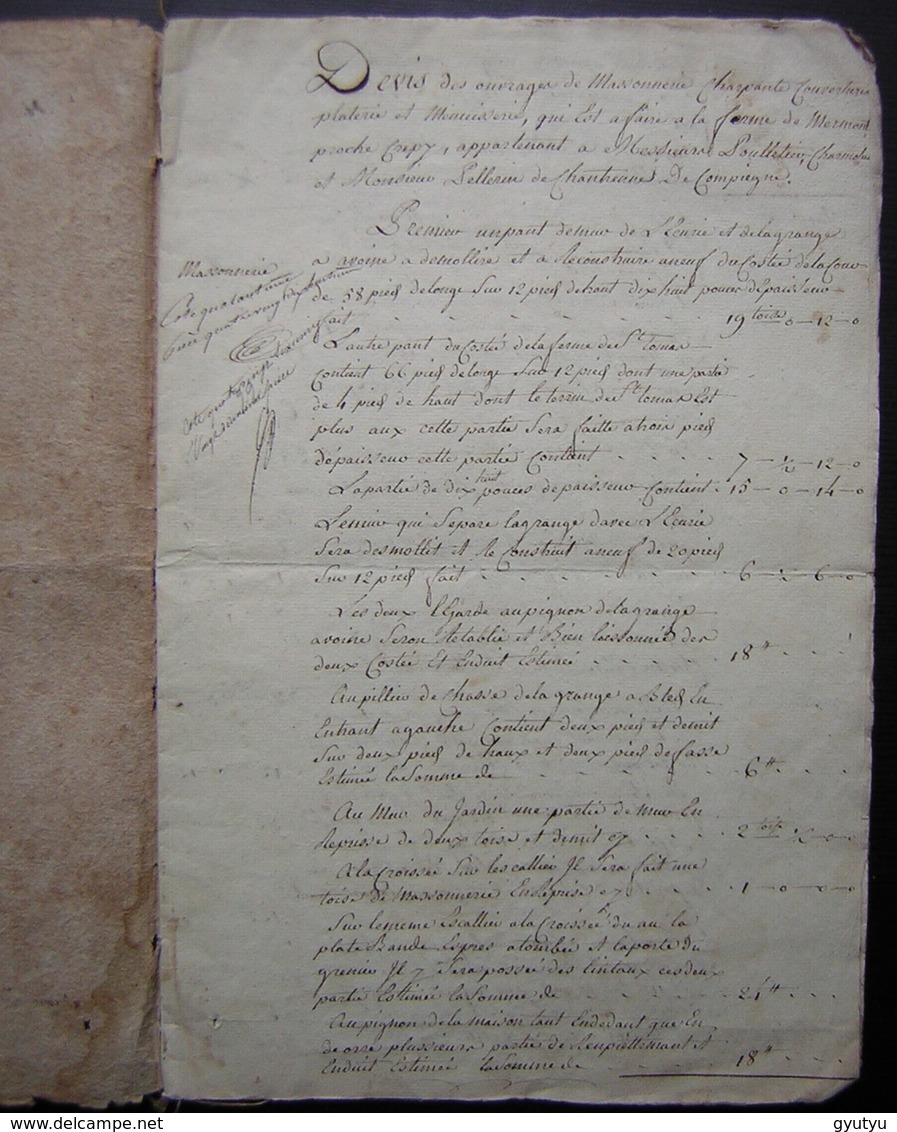 Devis des ouvrages de Massonnerie Charpante Couverture
platerie et Menuisserie, qui Est a faire a la ferme de Mermont
proche Crepy, appartenant a Messieurs Poulletier, Charmolue
et Monsieur Pellerin de Chantrenne De Compiegne.
Premier un pant de mur de L'Ecurie et de la grange
Massonnerie
a avoine a desmollire et a Reconstruire aneuf du Costée de la Cour
de 58 pied de longe Sur 12 pied de haut dix huit pouces d'épaisseur
fait 19 toises 0 - 12 - 0
L'autre pant du Costée de la ferme de St tomas
Contient 66 pied de longe Sur 12 pied dont une partie
de 4 pied de haut dont le terrin de St tomas Est
plus aux cette partie Sera faitte a trois pied
d'épaisseur cette partie Contient 7 - ½ - 12 - 0
La partie de dix huit pouces d'epaisseur Contient 15 - 0 - 14 - 0
Le mur qui Separe la grange d'avec L'Ecurie
Sera desmollit Et Re Construit aneuf de 20 pied
Sur 12 pied fait 6 - ½ - 6 - 0
Les deux Egarde au pignon de la grange
avoine Seron Retablie et Bien des
deux Costée Et Enduit Estimée 18 ₶
Au pillier de Chasse de la grange a Bled En
Entrant a gauche Contient deux pied et demit
Sur deux pied de haux et deux pied de fasse
Estimée la Somme de 6 ₶
Au Mur du Jardin une partie de mur En
Reprisse de deux toise et dimit cy 2 toises ½ - 0 - 0
A la Croissée Sur l'escallier Il Sera fait une
toise de Massonnerie En Reprise cy 1 - 0 - 0 - 0
Sur le meme Escallier a la Croissée du au la
plate Bande Espres a tombée Et la porte du
grenier Il y Sera possée des lintaux ces deux
partie Estimée la Somme de 24 ₶
Au pignon de la maison tant En dedant que En
de orre plussieurs partie de Et
Enduit Estimée la Somme de 18 ₶
gyutyu